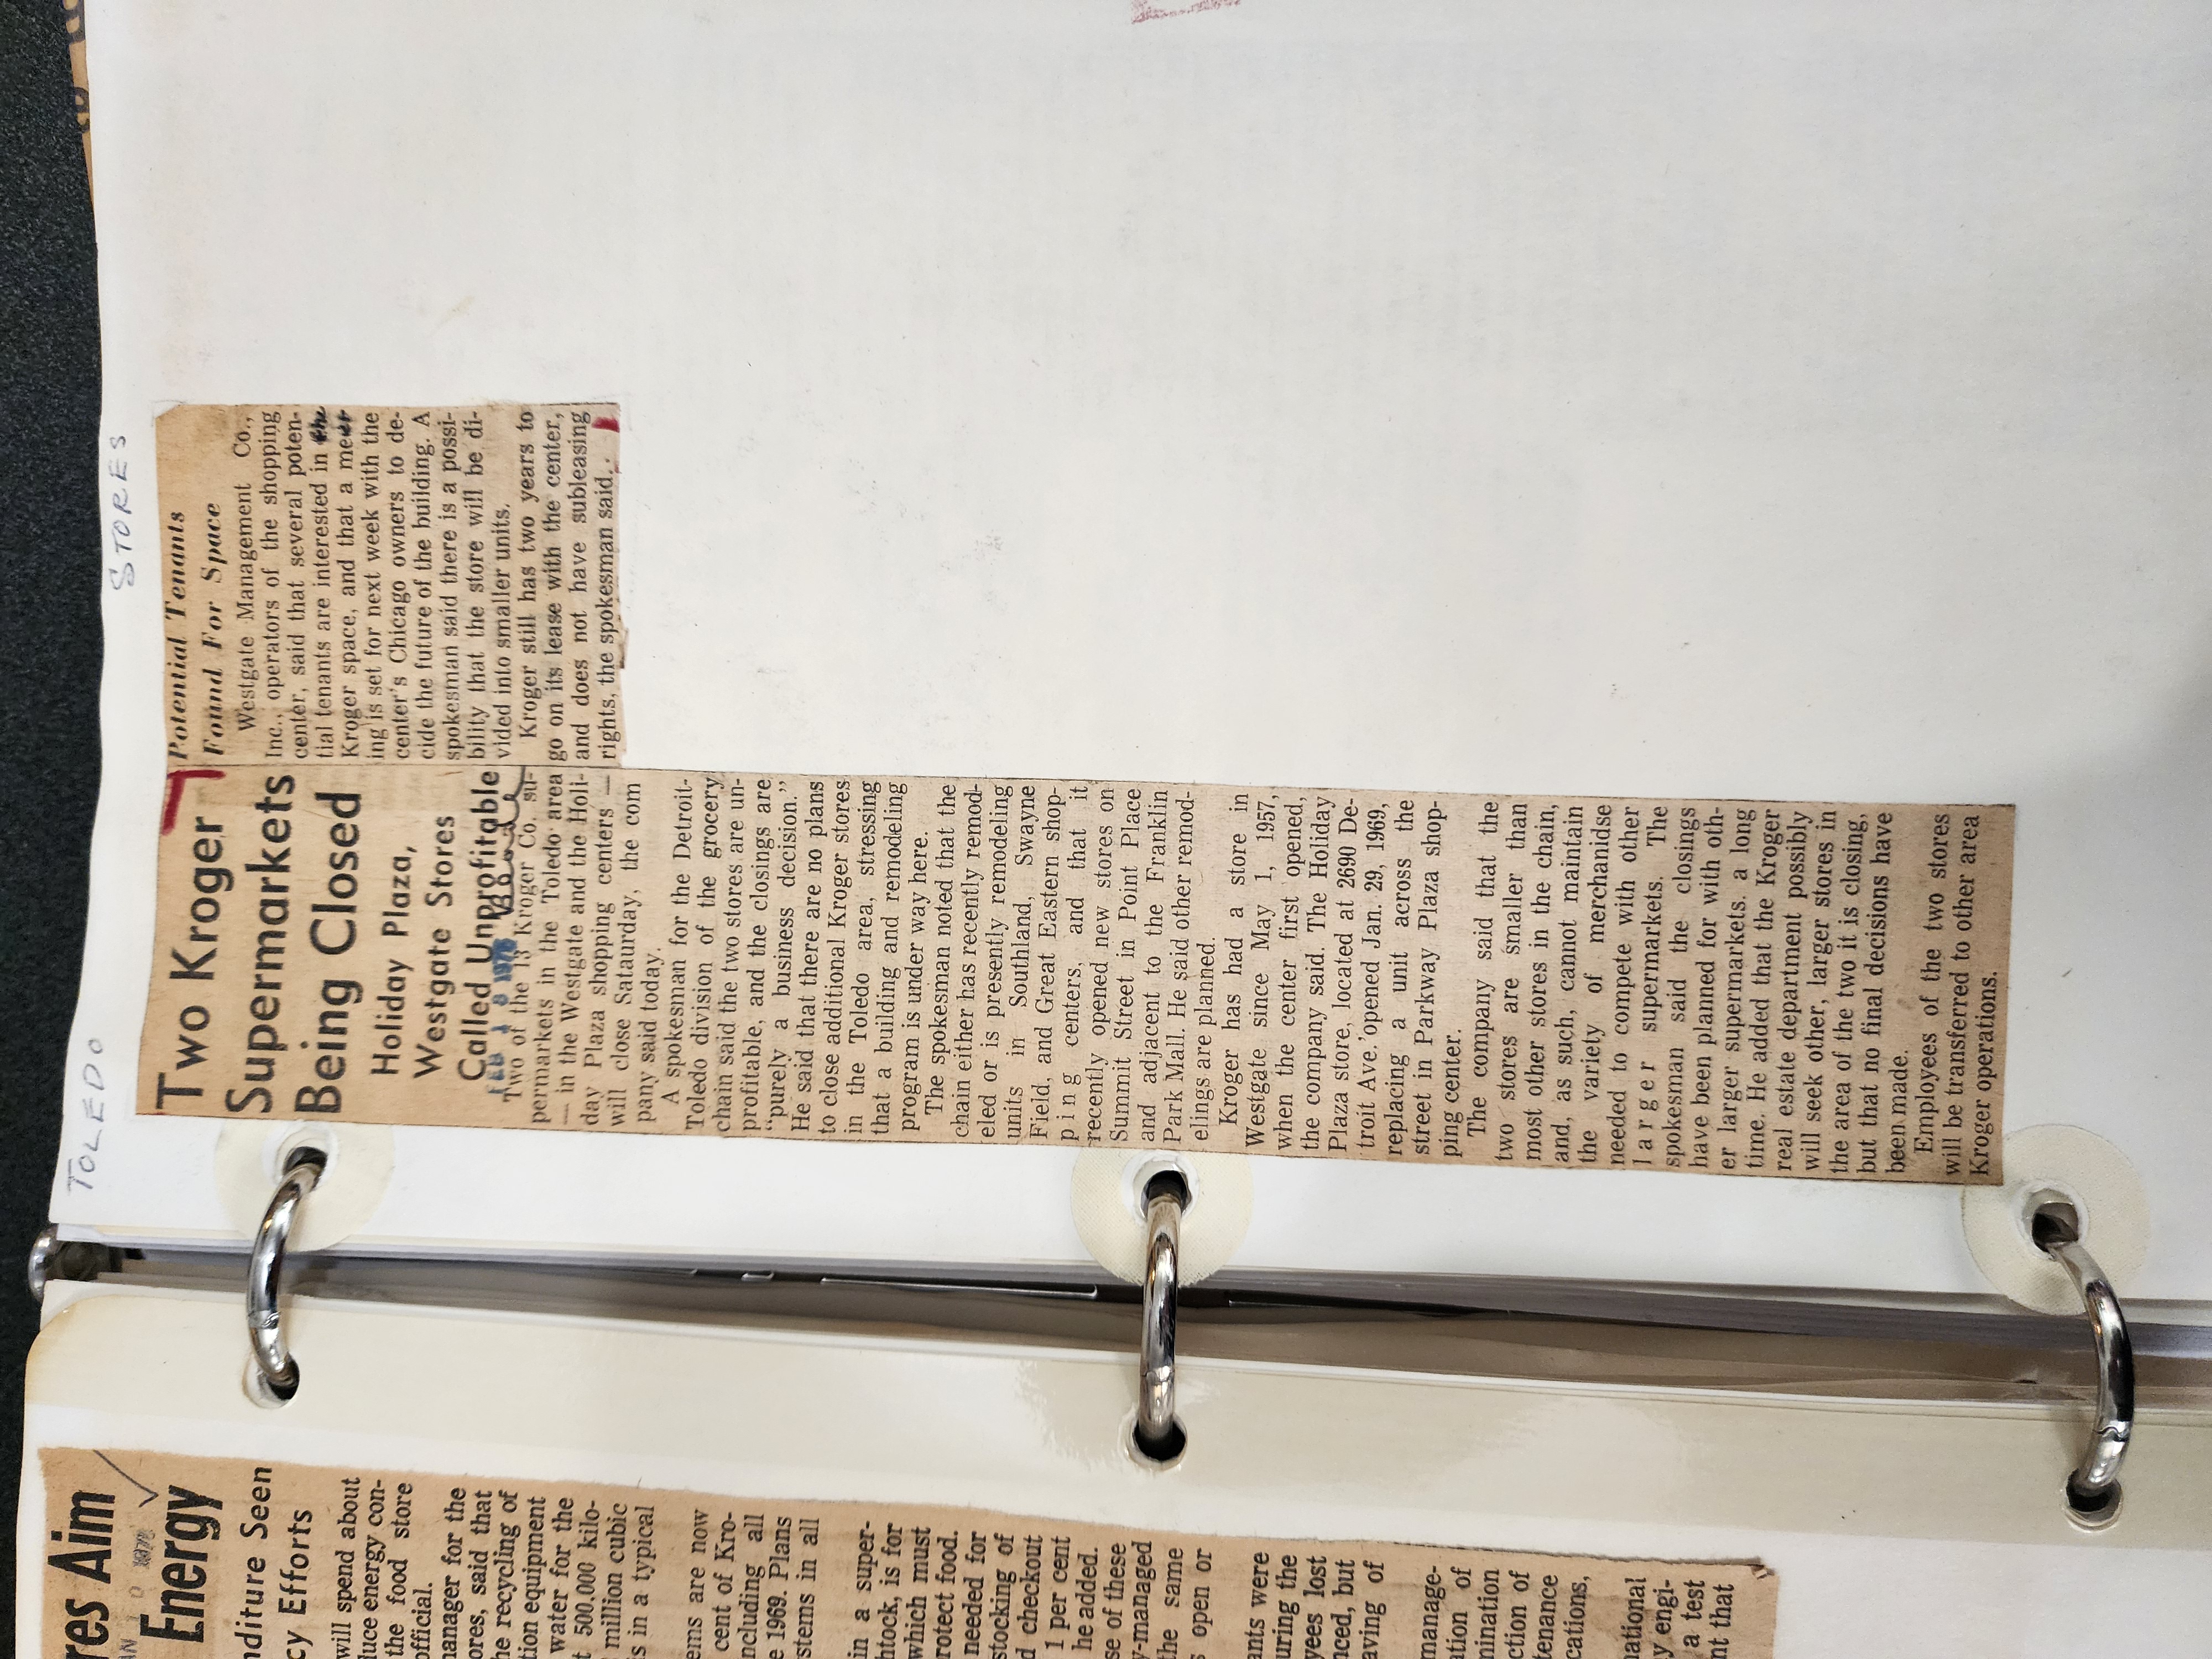 TOLEDO
STORES
Two Kroger
Supermarkets
Being Closed
Holiday Plaza,
Westgate Stores
Called Unprofitable
FEB 1 8 1976
Blade
Two of the 13 Kroger Co. su-
permarkets in the Toledo area
— in the Westgate and the Holi-
day Plaza shopping centers —
will close Sataurday, the com
pany said today.
A spokesman for the Detroit-
Toledo division of the grocery
chain said the two stores are un-
profitable, and the closings are
“purely a business decision.”
He said that there are no plans
to close additional Kroger stores
in the Toledo area, stressing
that a building and remodeling
program is under way here.
The spokesman noted that the
chain either has recently remod-
eled or is presently remodeling
units in Southland, Swayne
Field, and Great Eastern shop-
ping centers, and that it
recently opened new stores on
Summit Street in Point Place
and adjacent to the Franklin
Park Mall. He said other remod-
elings are planned.
Kroger has had a store in
Westgate since May 1, 1957,
when the center first opened,
the company said. The Holiday
Plaza store, located at 2690 De-
troit Ave. opened Jan. 29, 1969,
replacing a unit across the
street in Parkway Plaza shop-
ping center.
The company said that the
two stores are smaller than
most other stores in the chain,
and, as such, cannot maintain
the variety of merchanidse
needed to compete with other
larger supermarkets. The
spokesman said the closings
have been planned for with oth-
er larger supermarkets. a long
time. He added that the Kroger
real estate department possibly
will seek other, larger stores in
the area of the two it is closing,
but that no final decisions have
been made.
Employees of the two stores
will be transferred to other area
Kroger operations.
Potential Tenants
Found For Space
Westgate Management Co.,
Inc., operators of the shopping
center, said that several poten-
tial tenants are interested in the
Kroger space, and that a meet-
ing is set for next week with the
center's Chicago owners to de-
cide the future of the building. A
spokesman said there is a possi-
bility that the store will be di-
vided into smaller units.
Kroger still has two years to
go on its lease with the center,
and does not have subleasing
rights, the spokesman said.
res Aim
Energy
nditure Seen
cy Efforts
will spend about
luce energy con-
the food store
official.
manager for the
ores, said that
he recycling of
tion equipment
water for the
t 500,000 kilo-
million cubic
s in a typical
ems are now
cent of Kro-
ncluding all
e 1969. Plans
stems in all
in a super-
htock, is for
which must
rotect food.
needed for
stocking of
d checkout
1 per cent
he added.
se of these
y-managed
the same
s open or
ants were
uring the
yees lost
nced, but
aving of
manage-
ation of
mination
ction of
tenance
cations,
national
y engi-
a test
nt that